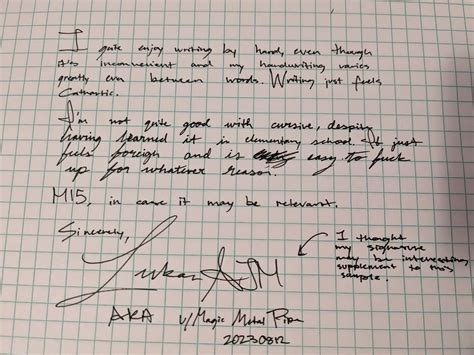 I quite enjoy writing by hand, even though
it's inconvenient and my handwriting varies
greatly even between words. Writing just feels
Cathartic.
I'm not quite good with cursive, despite
having learned it in elementary school. It just
feels foreign and is easy to fuck
up for whatever reason.
M15, in case it may be relevant.
Sincerely,
Lukas AJM
I thought
my signature
may be interesting
supplement to this
sample.
AKA u/Magic Metal Pipe
20230812